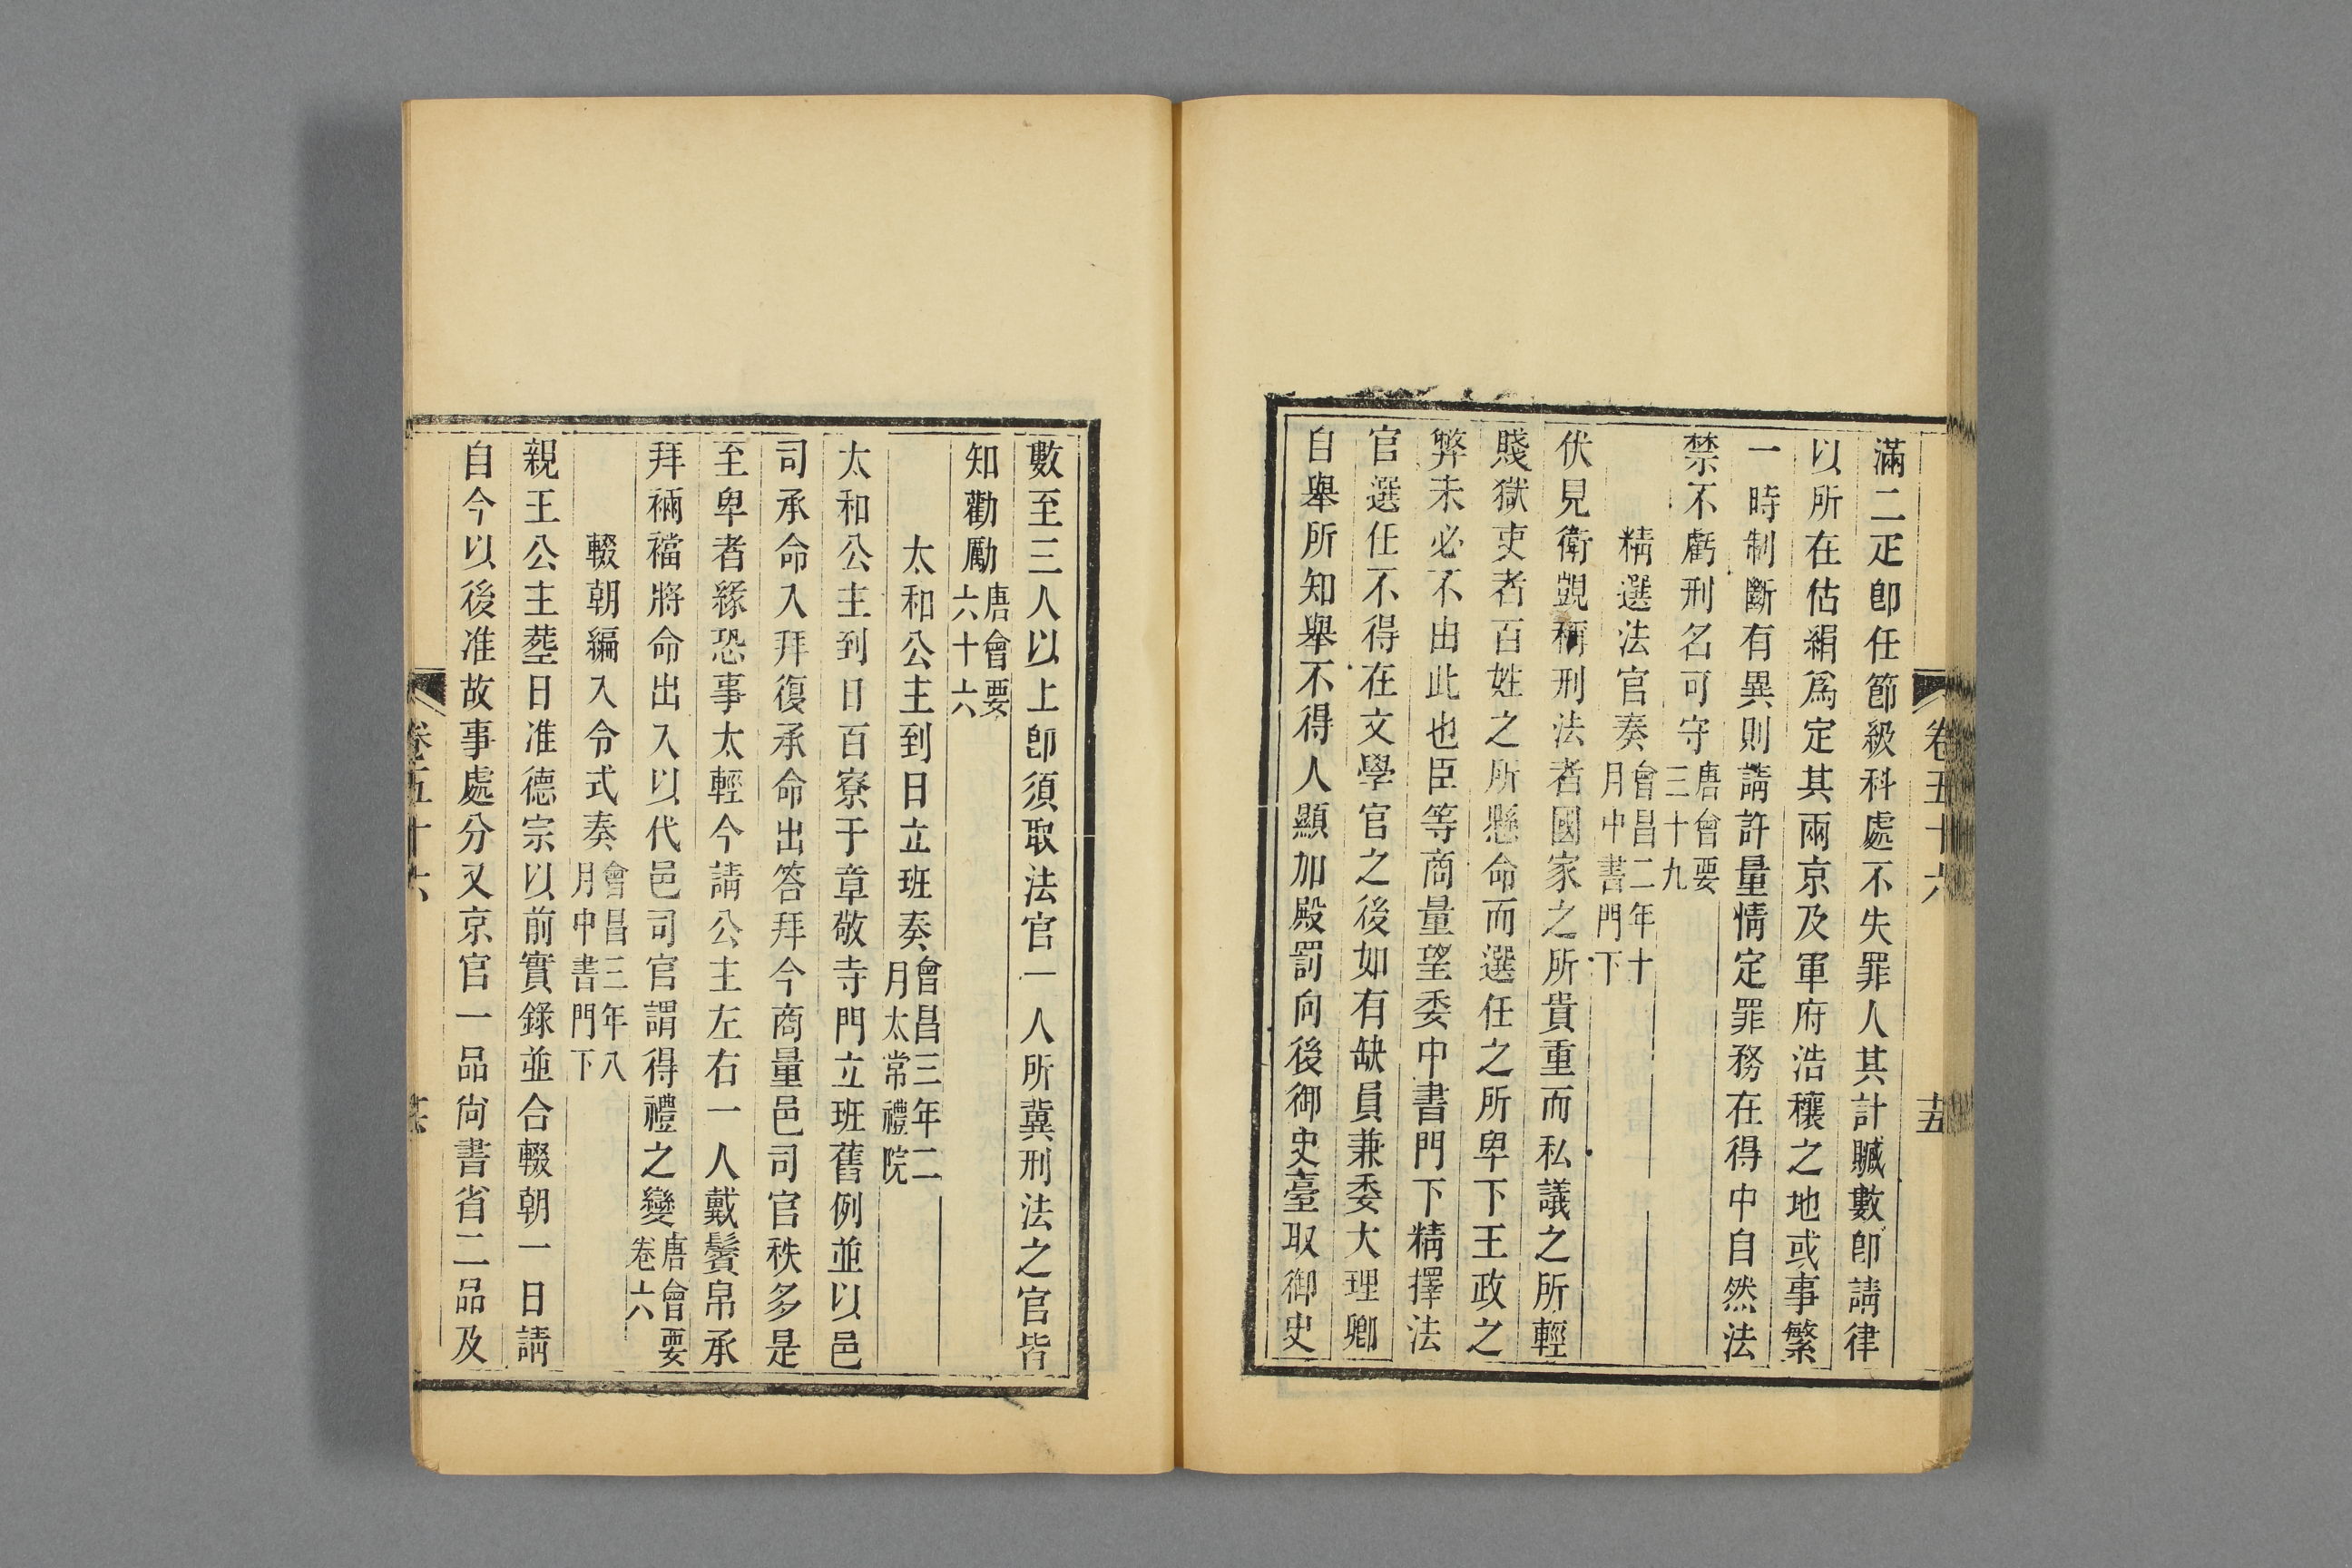 卷五十六 十五
滿二疋卽任節級科處不失罪人其計贓數卽請律
以所在估絹爲定其兩京及軍府浩穰之地或事繁
一時制斷有異則請許量情定罪務在得中自然法
禁不虧刑名可守唐會要三十九
精選法官奏會昌二年十月中書門下
伏見衛覬稱刑法者國家之所貴重而私議之所輕
賤獄吏者百姓之所懸命而選任之所卑下王政之
弊未必不由此也臣等商量望委中書門下精擇法
官選任不得在文學官之後如有缺員兼委大理卿
自舉所知舉不得人顯加殿罰向後御史臺取御史
數至三人以上卽須取法官一人所冀刑法之官皆
知勸勵唐會要六十六
太和公主到日立班奏會昌三年二月太常禮院
太和公主到日百寮于章敬寺門立班舊例並以邑
司承命入拜復承命出答拜今商量邑司官秩多是
至卑者緣恐事太輕今請公主左右一人戴鬢帛承
拜裲襠將命出入以代邑司官謂得禮之變唐會要卷六
輟朝編入令式奏會昌三年八月中書門下
親王公主葬日准德宗以前實錄並合輟朝一日請
自今以後准故事處分又京官一品尙書省二品及
卷五十六